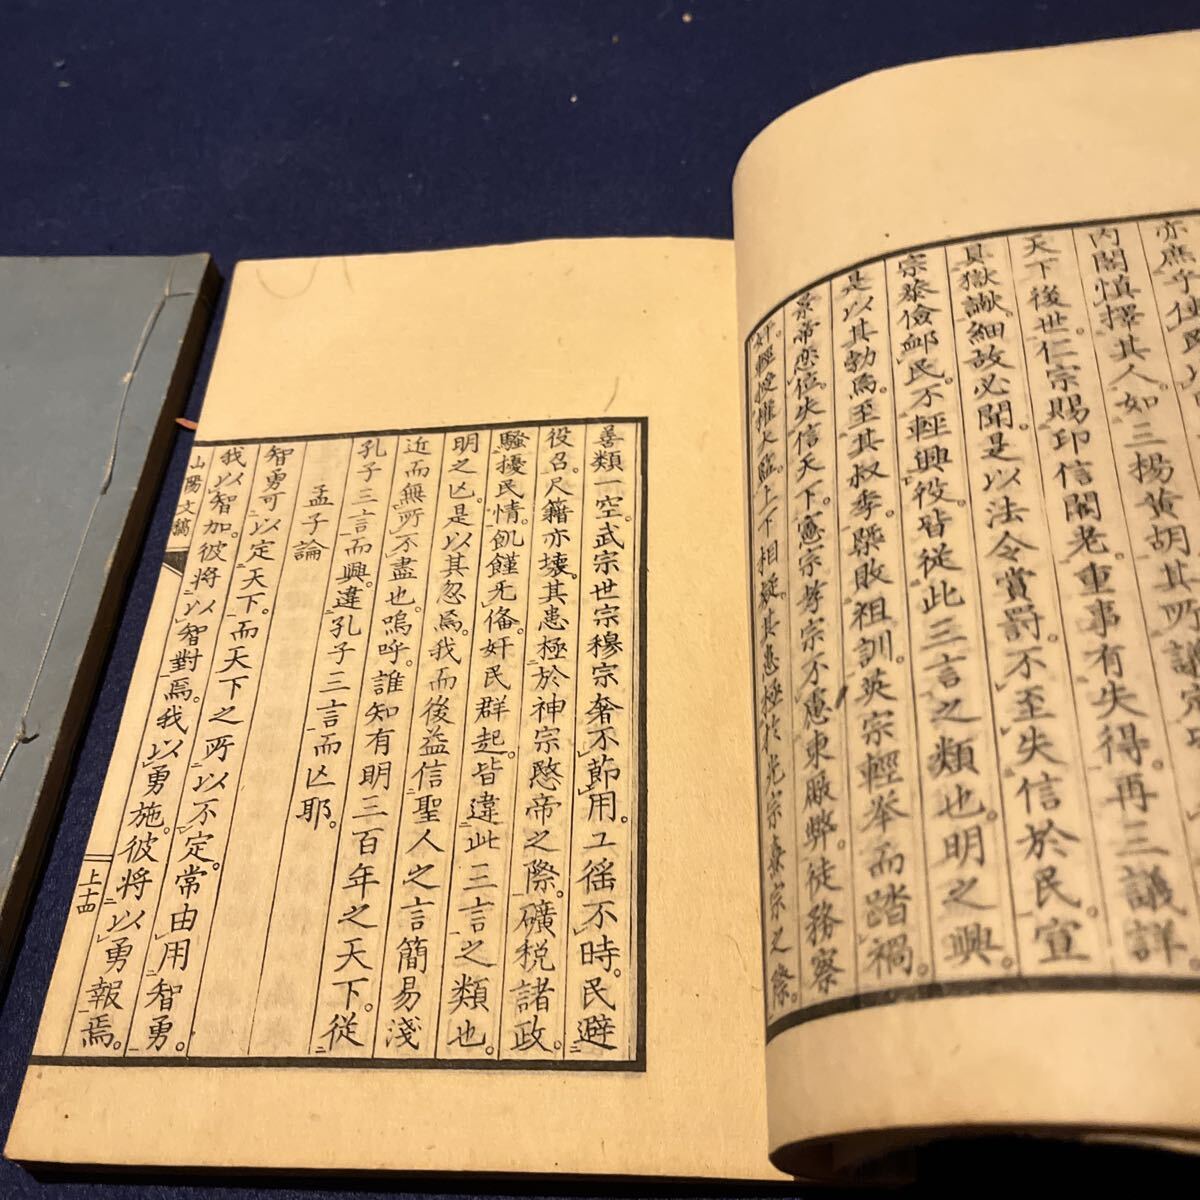 亦庶乎使民
內閣慎擇其人如三楊黃胡其所議
天下後世仁宗賜印信閣老重事有失得再三議詳
具獄讞細故必聞是以法令賞罰不至失信於民宣
宗恭儉卹民不輕興役皆從此三言之類也明之興
是以其勃焉至其叔季縣敗祖訓英宗輕舉而踏禍
景帝戀位失信天下憲宗孝宗不慮東厰弊徒務察
奸輕授權大監上下相疑其患極於光宗熹宗之際
善類一空武宗世宗穆宗奢不節用工徭不時民避
役召尺籍亦壞其患極於神宗愍帝之際礦税諸政
騷擾民情飢饉旡俻奸民群起皆違此三言之類也
明之亾是以其忽焉我而後益信聖人之言簡易淺
近而無所不盡也嗚呼誰知有明三百年之天下從
孔子三言而興違孔子三言而亾耶
孟子論
智勇可以定天下而天下之所以不定常由用智勇
我以智加彼將以智對焉我以勇施彼將以勇報焉
山陽文稿
上十四